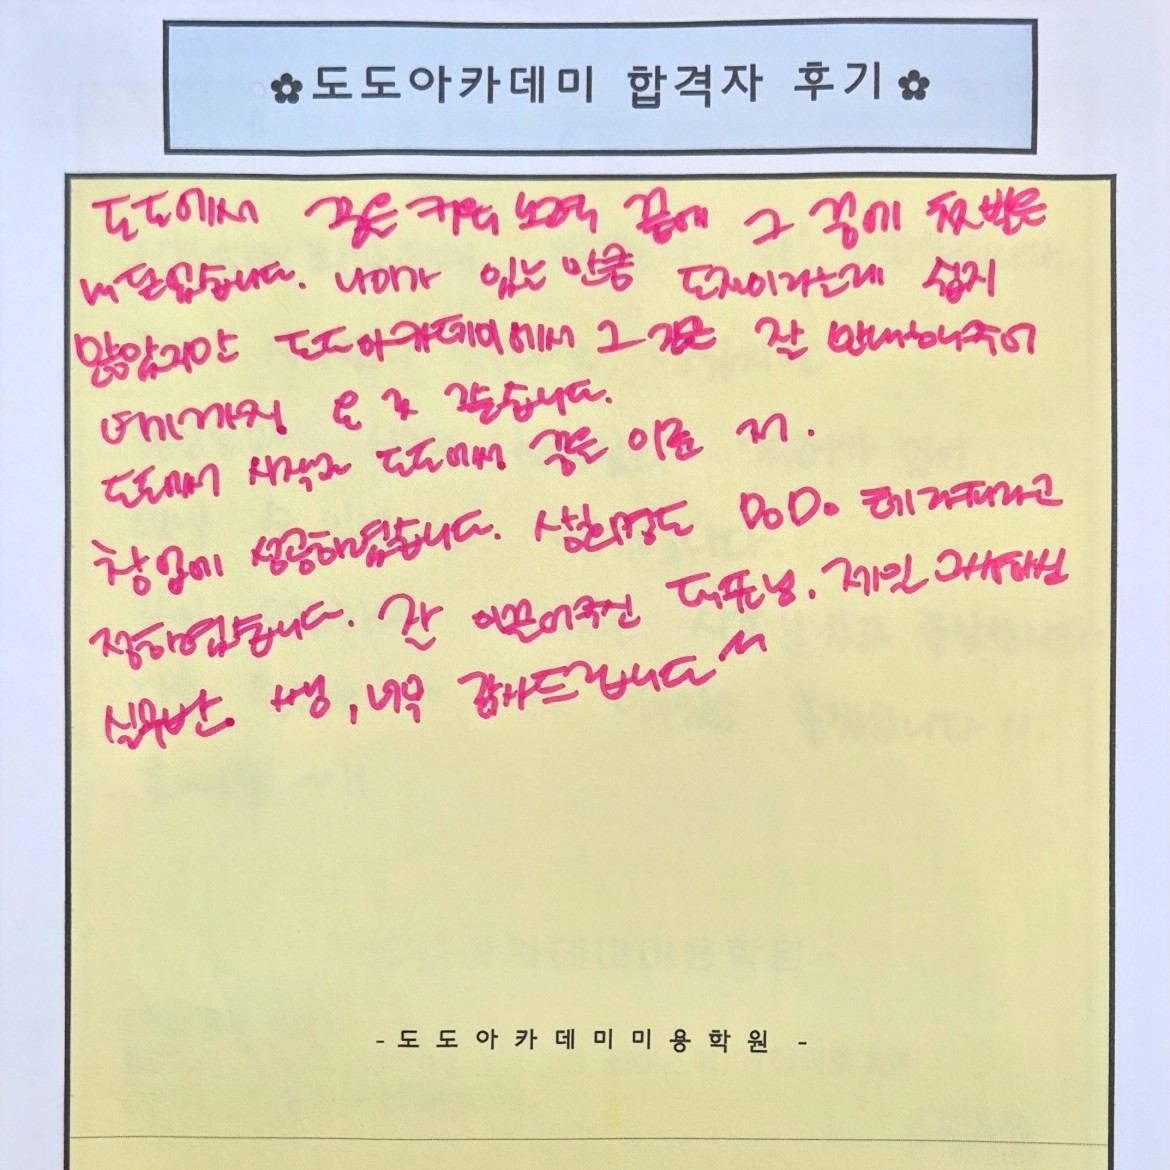 ✿도도아카데미 합격자 후기✿
도도에서 꿈을 키워 노력 끝에 그 꿈에 첫발을
내 딛었습니다. 나이가 있는 만큼 도전이라는게 쉽지
않았지만 도도아카데미에서 그 길을 잘 안내해주어
여기까지 온 것 같습니다.
도도에서 시작과 도도에서 꿈을 이룬 저.
창업에 성공하였습니다. 상호명도 DoDo 테라피라고
정하였습니다. 잘 이끌어주신 대표님, 제일
실무반. 쌤, 너무 감사드립니다^^
- 도 도 아 카 데 미 미 용 학 원 -